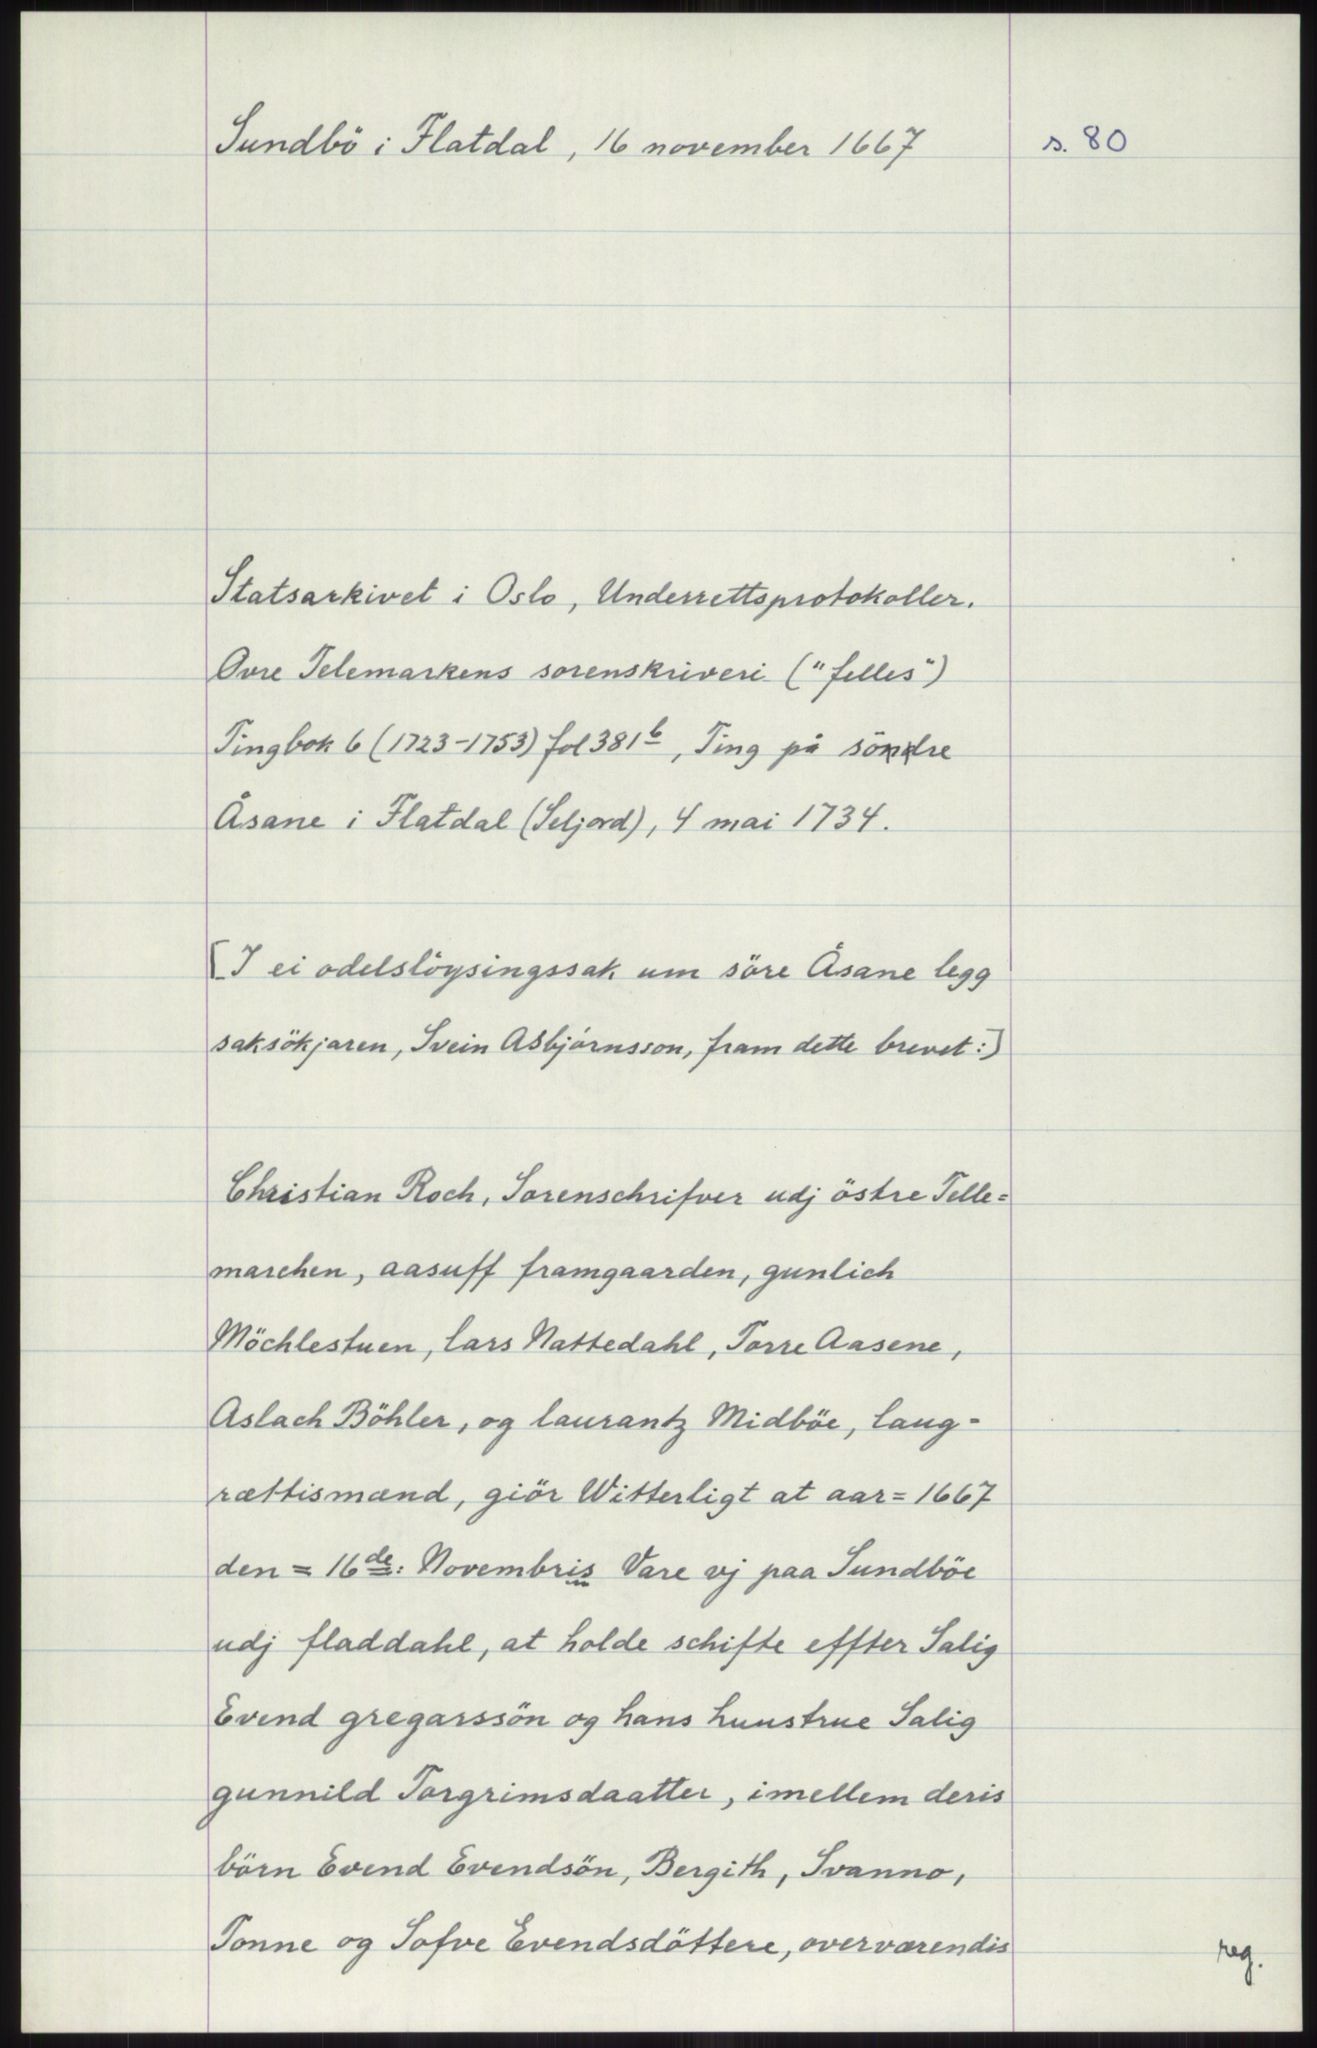 Sundbö i Flatdal, 16 november 1667
s. 80
Statsarkivet i Oslo, Underrettsprotokoller.
Øvre Telemarkens sorenskriveri ("felles")
Tingbok 6 (1723-1753) fol 381b, Ting på söndre
Åsane i Flatdal (Seljord), 4 mai 1734.
[I ei odelslöysingssak um söre Åsane legg
saksökjaren, Svein Asbjørnsson, fram dette brevet:]
Christian Roch, Sorenschrifver udj östre Telle=
marchen, aasuff framgaarden, gunlich
Möchlestuen, lars Nattedahl, Torre Aasene,
Aslach Böhler, og laurantz Midböe, laug-
rættismænd, giör Witterligt at aar = 1667
den = 16de: Novembris Vare vj paa Sundböe
udj fladdahl, at holde schifte effter Salig
Evend gregarssön og hans huustrue Salig
gunnild Torgrimsdaatter, imellem deris
börn Evend Evendsön, Bergith, Svanno,
Tonne og Sofve Evendsdöttere, overværendis
reg.